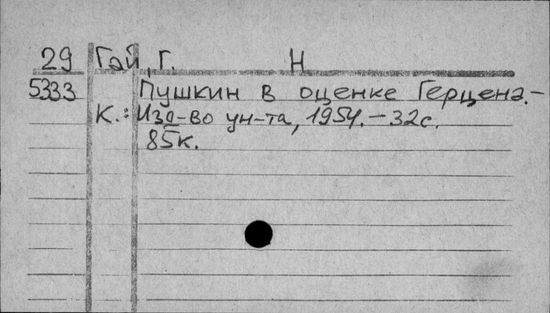 29 Гай, Г. Н
5333 Пушкин в оценке Герцена.-
К.: Изд-во ун-та, 1954.-32с.
85к.